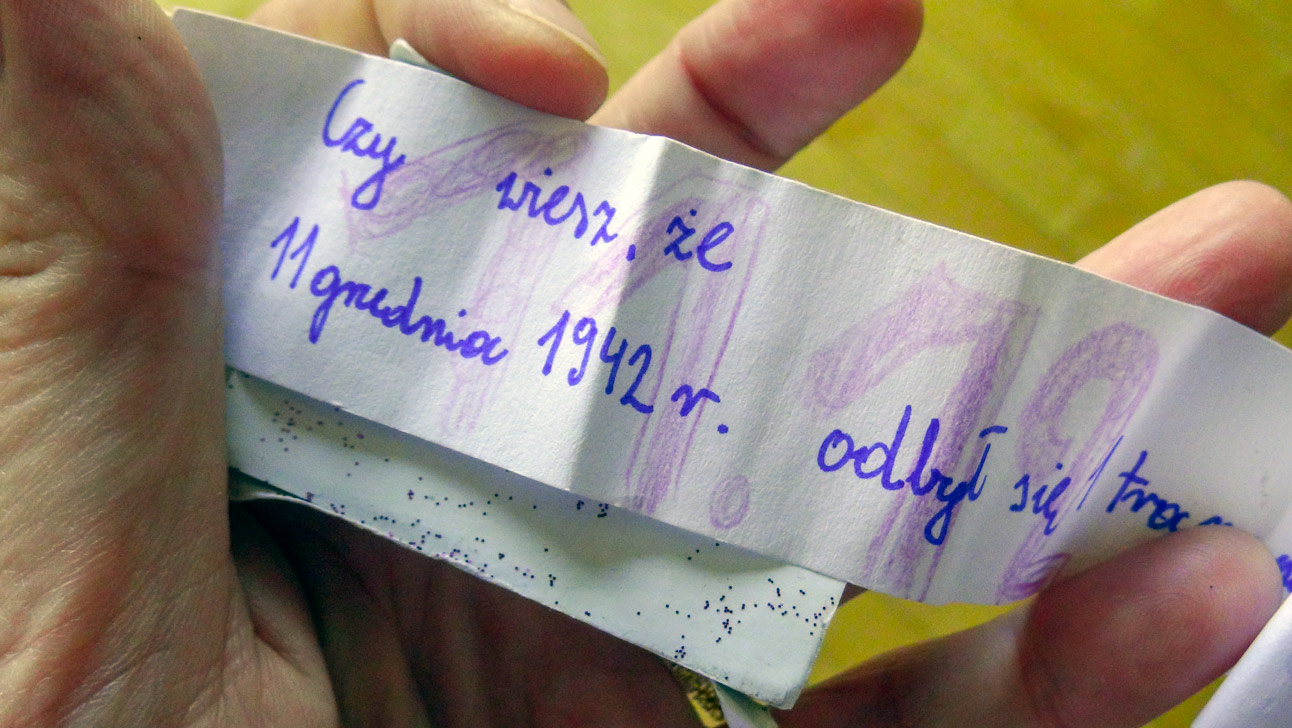 Czy wiesz, że
11 grudnia 1942 r. odbył się
11.12